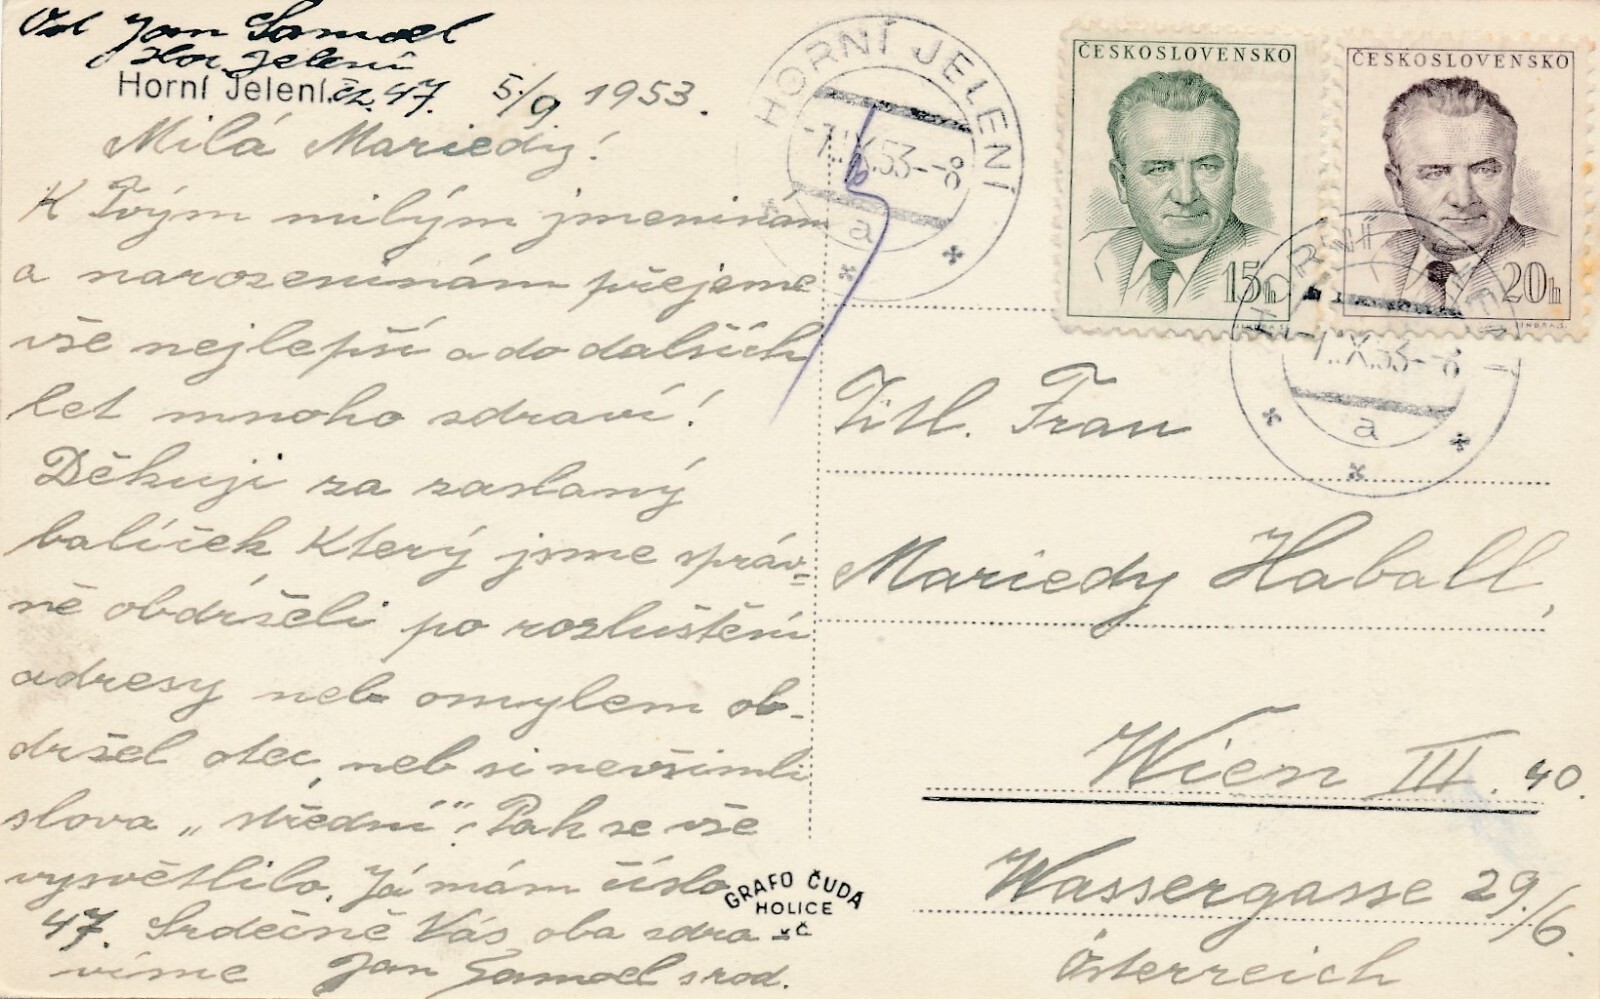 Jan Samoel
Hor. Jelení
Horní Jelení. čp. 47. 5./9 1953.
Milá Mariedy!
K Tvým milým jmeninám
a narozeninám přejeme
vše nejlepší a do dalších
let mnoho zdraví!
Děkuji za zaslaný
balíček Který jsme správ-
ně obdrželi po rozluštění
adresy neb omylem ob-
držel otec, neb si nevšimli
slova „střední". Pak se vše
vysvětlilo. Já mám číslo
47. Srdečně Vás oba zdra-
víme Jan Samoel s rod.
GRAFO ČUDA
HOLICE
VČ
HORNÍ JELENÍ
-7.IX.53--8
a
ČESKOSLOVENSKO
15h
ČESKOSLOVENSKO
20h
HORNÍ
-7.IX.53--8
a
Titl. Frau
Mariedy Haball,
Wien III. 40.
Wassergasse 29./6.
Österreich